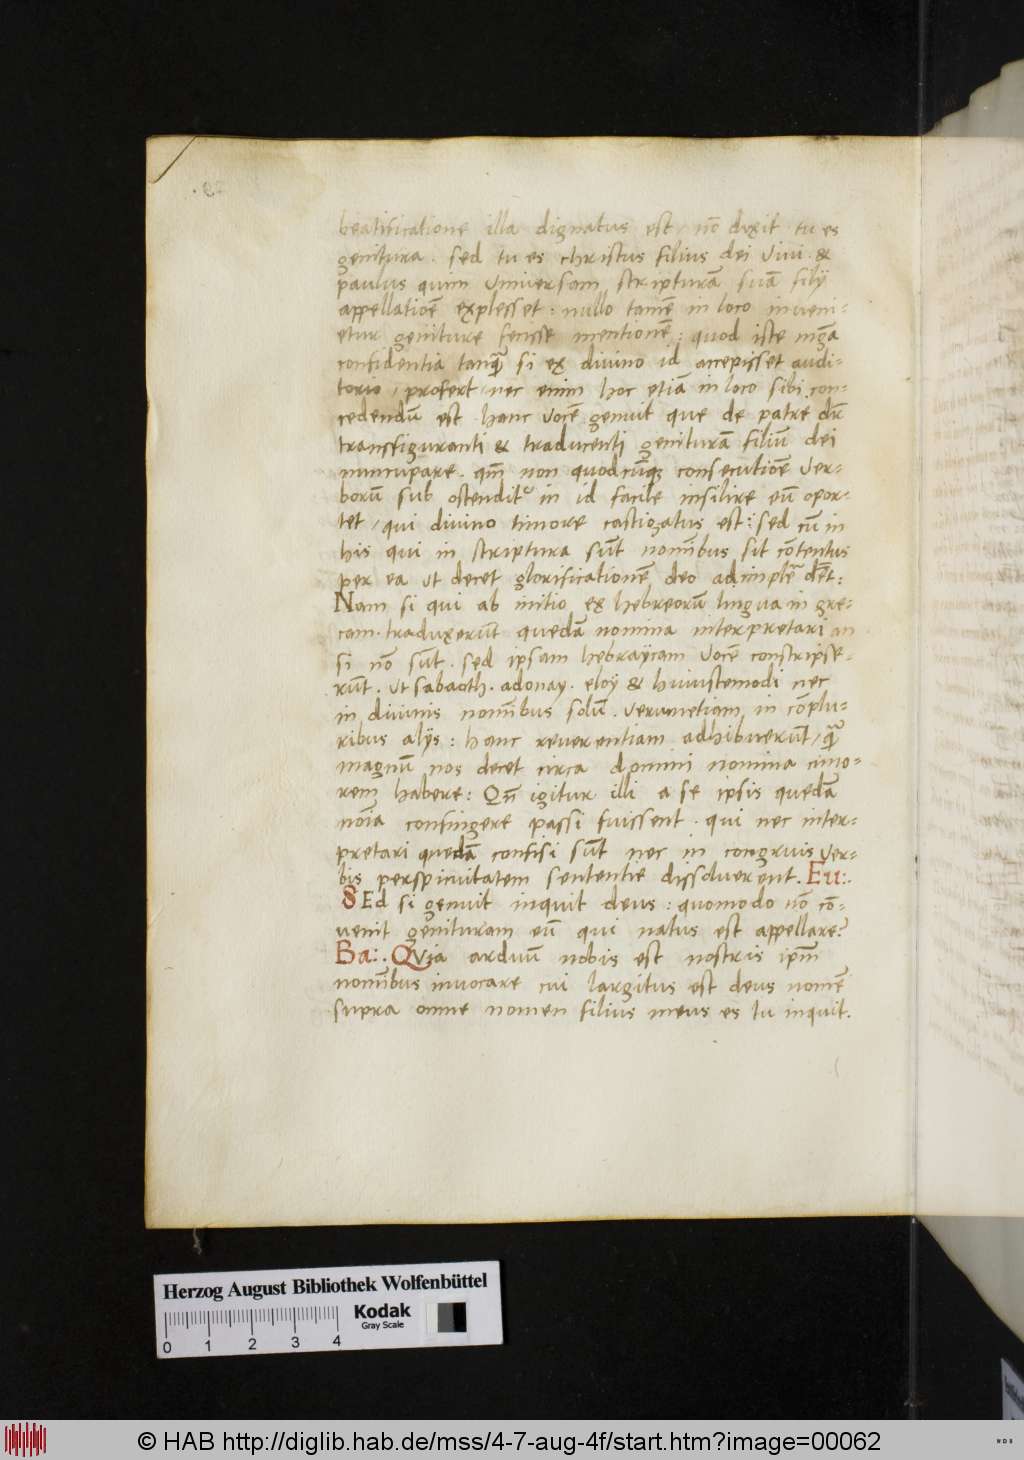 beatificatione illa dignatus est / nō dixit tu es
genitura . sed tu es christus filius dei vivi . &
paulus quim Universam scripturā suā filÿ
appellatiōē explesset : nullo tamē in loco inveni-
etur geniture fecisse mentionē : quod iste mḡa
confidentia tanq̄ si ex divino id accepisset audi-
torio / profert / nec enim hoc etiā in loco sibi con-
cedendū est hanc vocē genuit que de patre dr̄
transfiguranti & traducenti geniturā filiū dei
nuncupare . qm̄ non quodcūq; consecutiōē ver-
borū sub ostendit' in id facile insilire eū opor-
tet / qui divino timore castigatus est : sed cū in
his qui in scriptura sūt nomībus sit cōtentus
per ea ut decet glorificationē deo adimplē dēt :
Nam si qui ab initio ex hebreorū lingua in gre-
cam . traduxerūt quedā nomina interpretari an
si nō sūt . sed ipsam hebraÿcam vocē constripse-
rūt . ut sabaoth . adonay . eloÿ & huiustemodi nec
in divinis nomībus solū . verumetiam in cōplu-
ribus alÿs : hanc reverentiam adhibuerūt / q̄
magnū nos decet circa domini nomina timo-
rem habere : Qn̄ igitur illi a se ipsis quedā
noīa confingere passi fuissent . qui nec inter-
pretari quedā confisi sūt nec in congruis ver-
bis perspicuitatem sententie dissolverent . Eu:.
SEd si genuit inquit deus : quomodo nō cō-
venit genituram eū qui natus est appellare?
Ba:. Quia arduū nobis est nostris ipm̄
nomībus invocare cui largitus est deus nomē
supra omne nomen filius meus es tu inquit .
Herzog August Bibliothek Wolfenbüttel
Kodak
Gray Scale
0 1 2 3 4
© HAB http://diglib.hab.de/mss/4-7-aug-4f/start.htm?image=00062